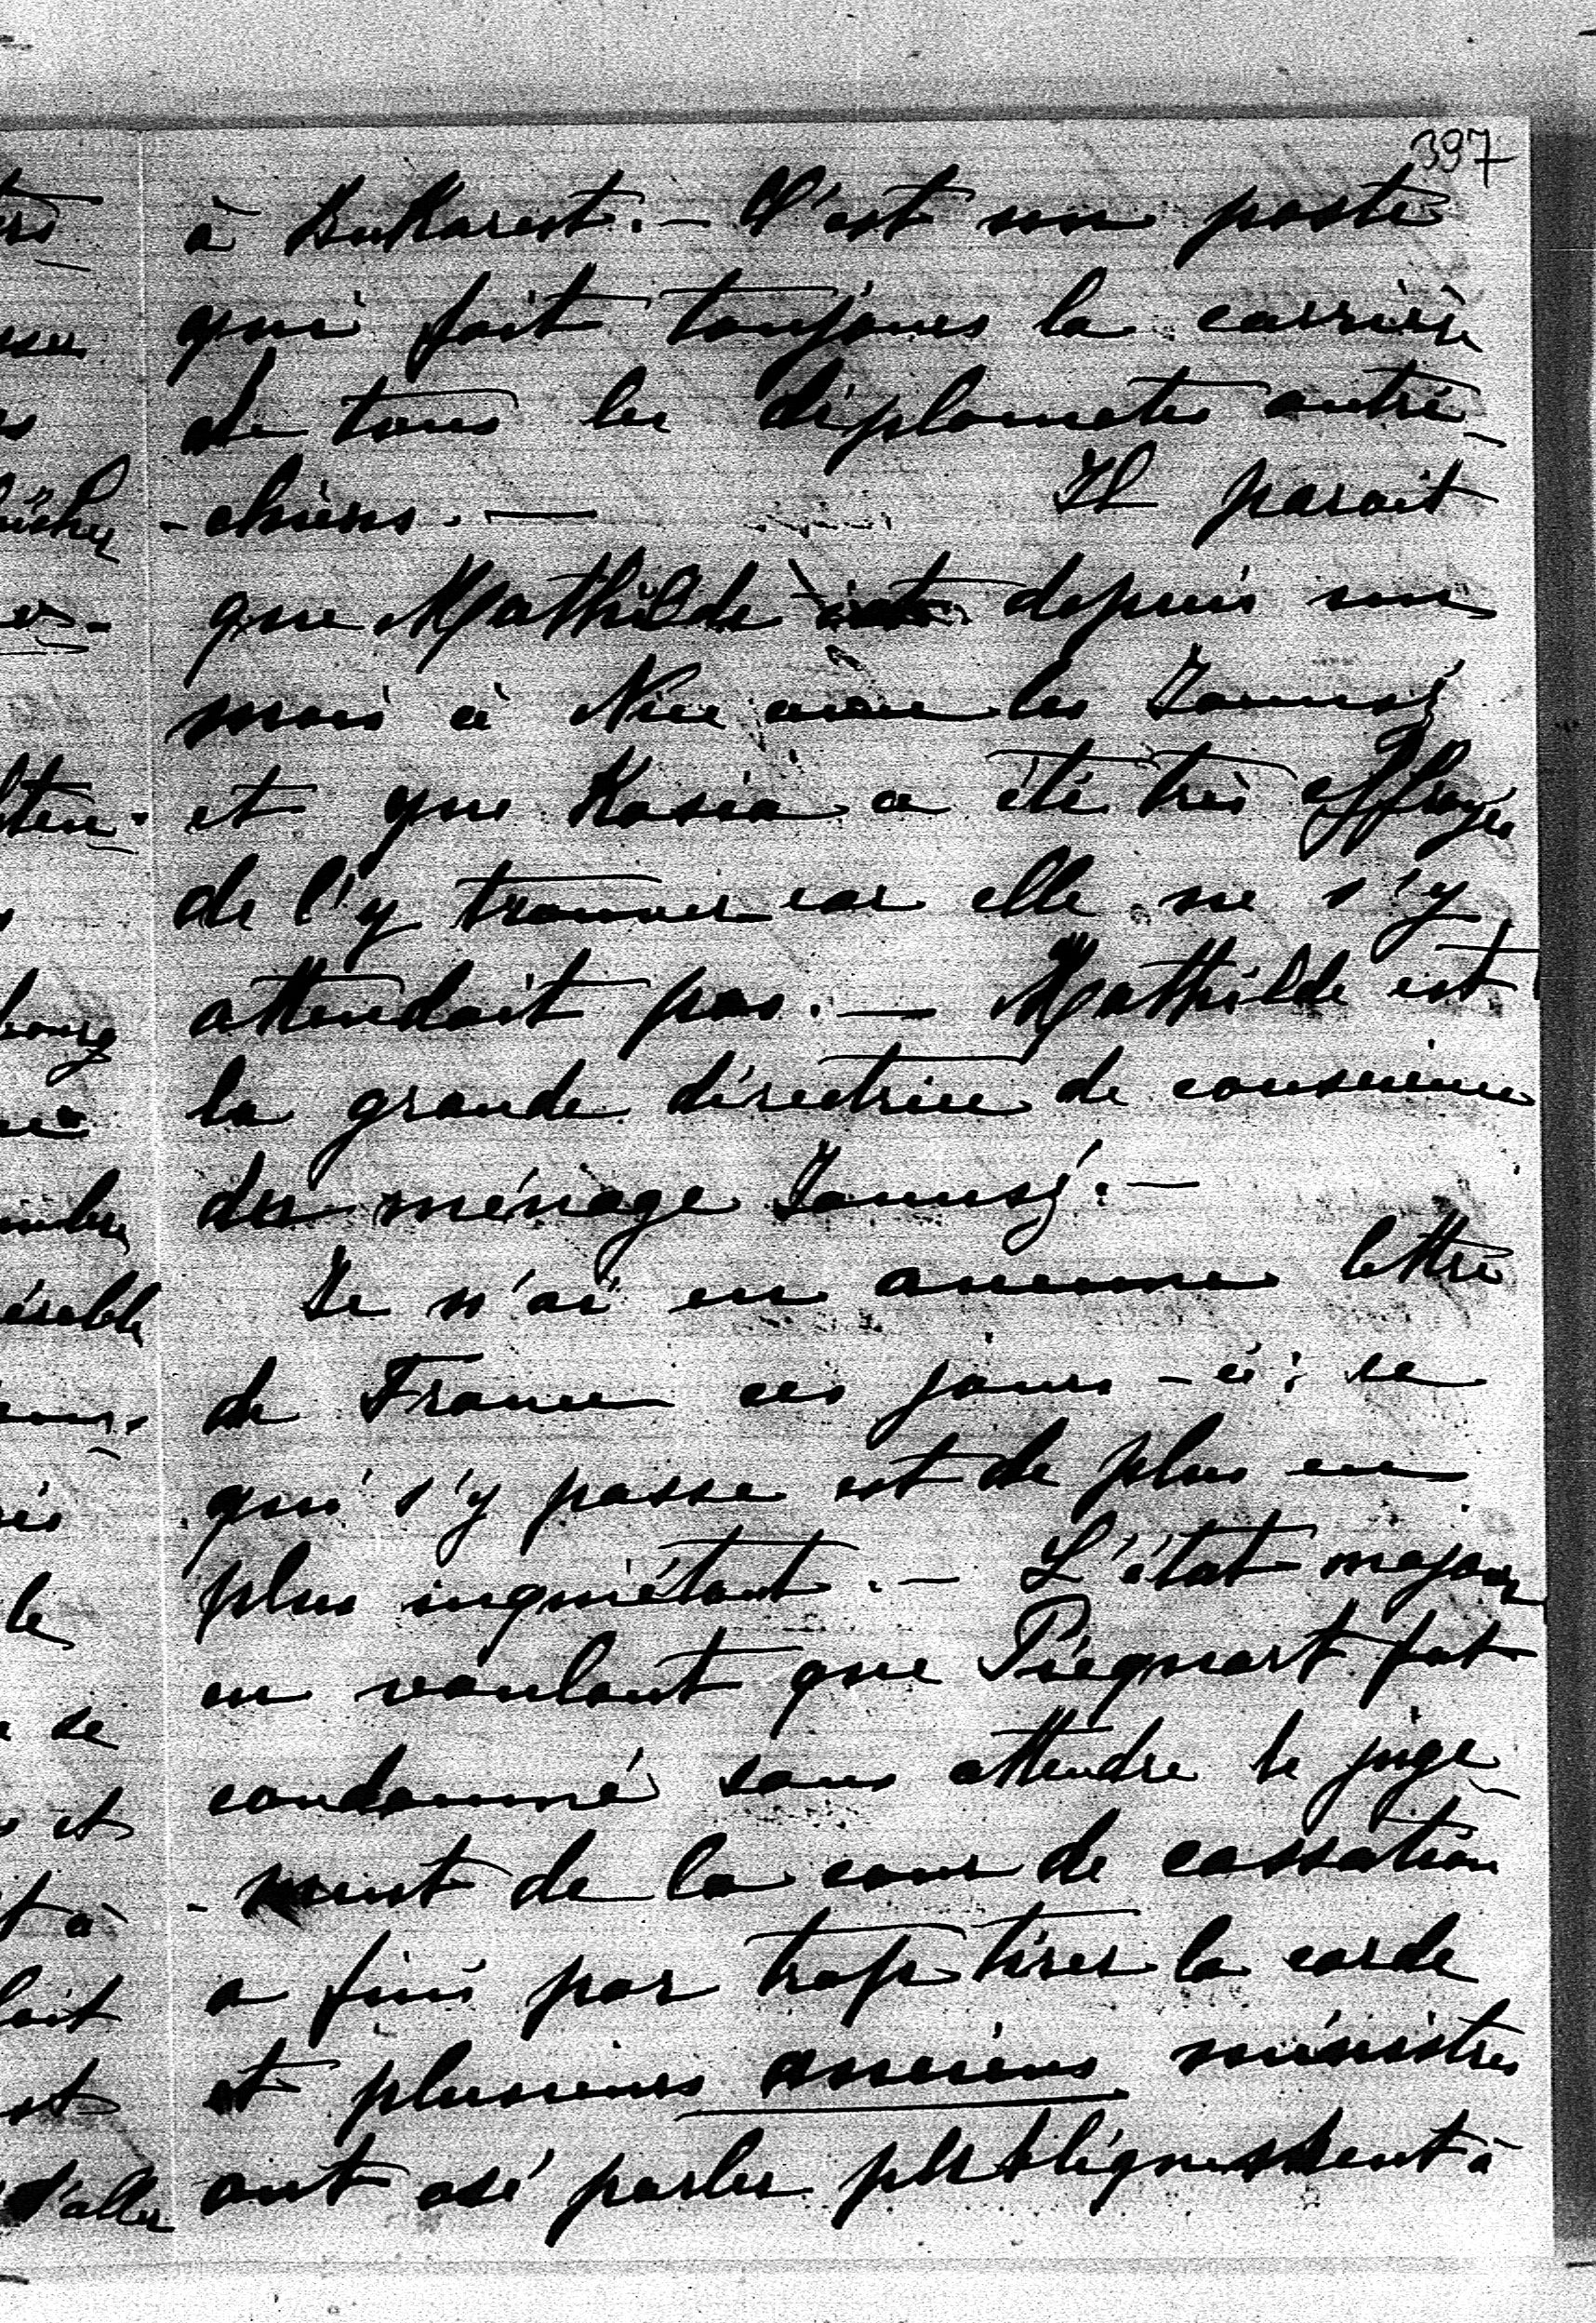 397
à Bukarest. — C'est un poste
qui fait toujours la carrière
de tous les diplomates autri-
-chiens. — Il parait
que Mathilde est depuis un
mois à Nice avec les
et que Kasia a été très effrayée
de l'y trouver car elle ne s'y
attendait pas. — Mathilde est
la grande directrice de conscience
du ménage
Je n'ai eu aucune lettre
de France ces jours-ci; ce
qui s'y passe est de plus en
plus inquiétant. — L'état major
en voulant que Picquart fut
condamné sans attendre le juge-
-ment de la cour de cassation
a fini par trop tirer la corde
et plusieurs anciens ministres
ont osé parler publiquement à